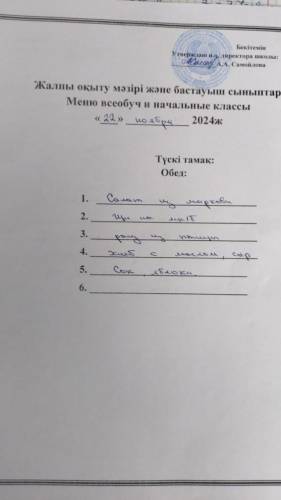 Бекітемін
Утверждаю и.о. директора школы:
А.А. Самойлова
Жалпы оқыту мәзірі және бастауыш сыныптар
Меню всеобуч и начальные классы
«22» ноября 2024ж
Түскі тамақ:
Обед:
1. Салат из моркови
2. Щи
3. из
4. хлеб с маслом, сыр
5. Сок, яблоки
6.